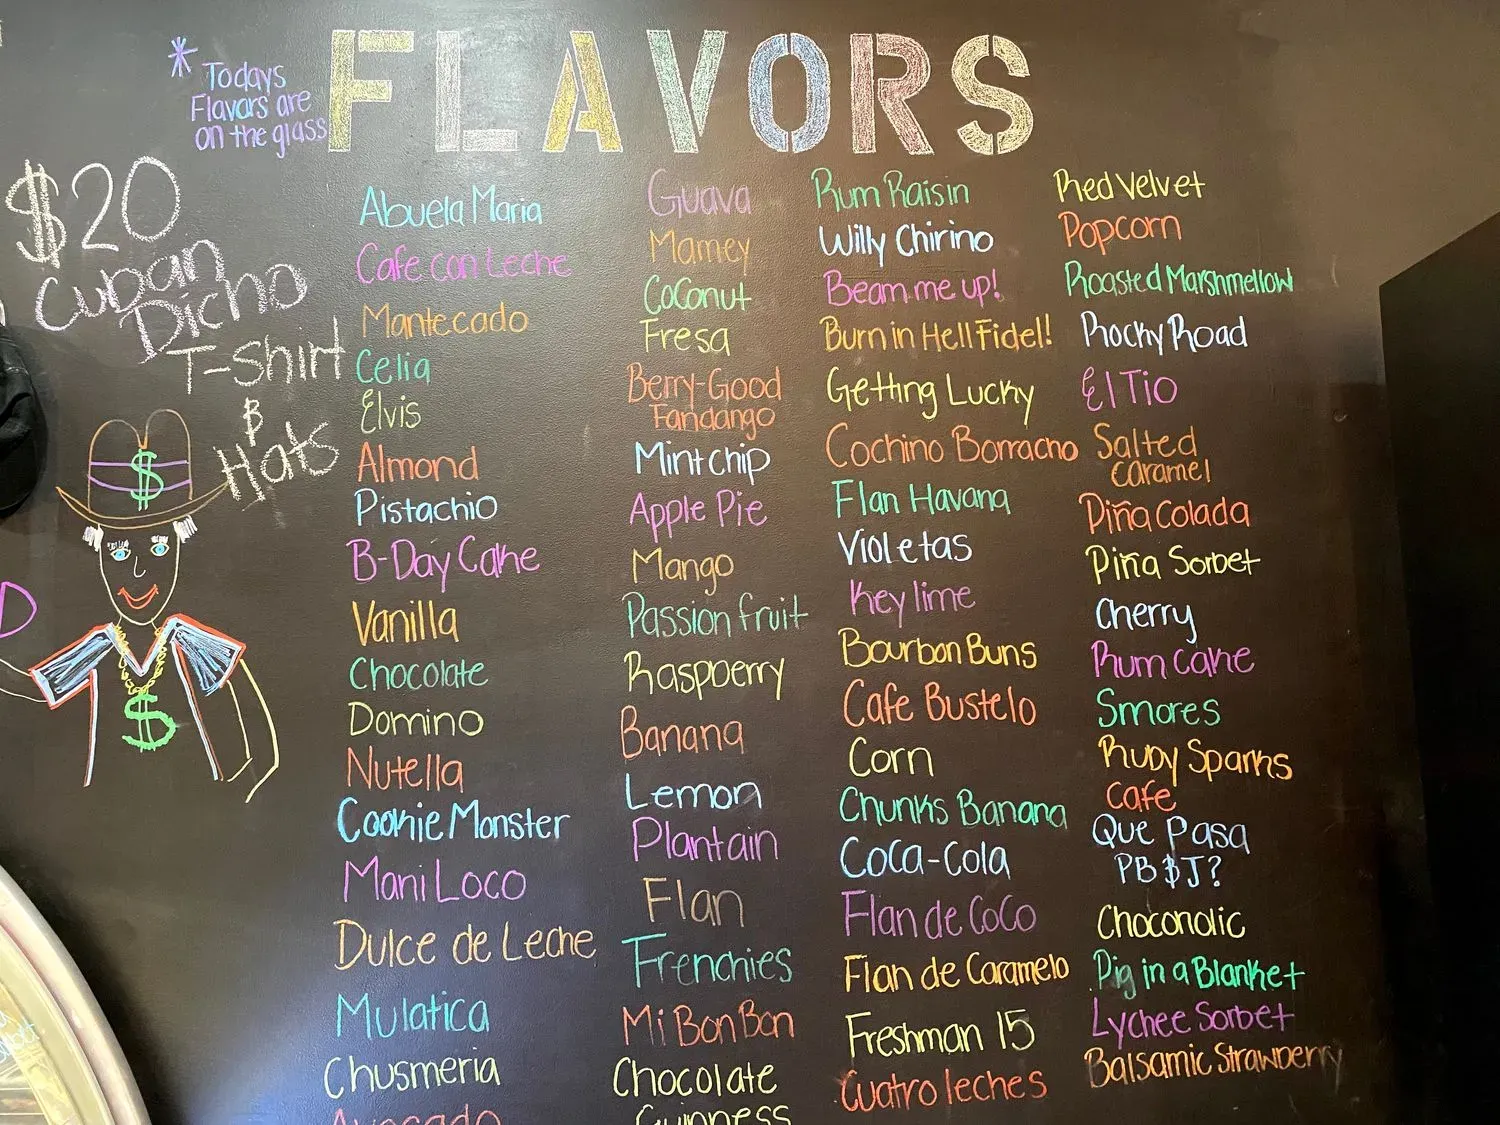 * Todays
Flavors are
on the glass
FLAVORS
$20
Cuban
Dicho
T-Shirt
&
Hats
Abuela Maria
Cafe con Leche
Mantecado
Celia
Elvis
Almond
Pistachio
B-Day Cake
Vanilla
Chocolate
Domino
Nutella
Cookie Monster
Mani Loco
Dulce de Leche
Mulatica
Chusmeria
Avocado
Guava
Mamey
Coconut
Fresa
Berry-Good
Fandango
Mint chip
Apple Pie
Mango
Passion fruit
Raspberry
Banana
Lemon
Plantain
Flan
Frenchies
Mi Bon Bon
Chocolate
Guinness
Rum Raisin
Willy Chirino
Beam me up!
Burn in Hell Fidel!
Getting Lucky
Cochino Borracho
Flan Havana
Violetas
Key lime
Bourbon Buns
Cafe Bustelo
Corn
Chunks Banana
Coca-Cola
Flan de Coco
Flan de Caramelo
Freshman 15
Cuatro leches
Red Velvet
Popcorn
Roasted Marshmellow
Rocky Road
El Tio
Salted
Caramel
Piña Colada
Piña Sorbet
Cherry
Rum Cake
Smores
Ruby Sparks
Cafe
Que Pasa
PB & J?
Chocoholic
Pig in a Blanket
Lychee Sorbet
Balsamic Strawberry